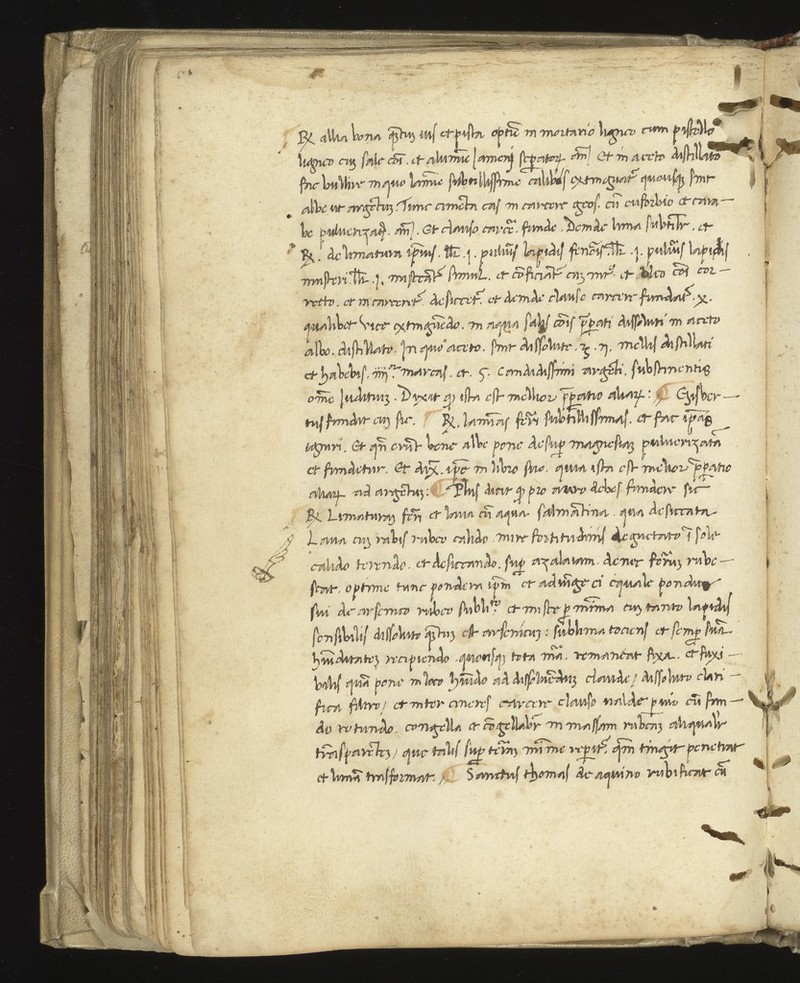 ℞ allia bona q̄tuʒ uis et pista optīe in mortario ligneo cum pistello
ligneo cuʒ sale cōi. et alumīe et in aceto distillato
fac bullire in quo lamīe subtillissime calibis extinguat᷑ quousqʒ sint
albe ut argētuʒ. Tunc cimēta eas in carcere cū euforbio et cara—
be puluerizaʒ. Et clauso carcē. funde. Deinde lima subtilr̄. et
℞. de limatura ip̄ius. lb̄. .i. puluīs lapidis lb̄. .i. puluīs lapidis
lb̄. .i. misceāt᷑ simul. et cōficiāt᷑ cuʒ et oleo cōi cor—
recto. et in carcere desiccet᷑. et deinde clauso carcere fundat᷑ .x.
qualibet vice extinguēdo. in aqua salis cōis p̄parati dissoluti in aceto
albo. distillato. In quo aceto. sint dissolute .ʒ. .ij. mellis distillati
et habebis. marcas. et .5. candidissimi argēti. substinentis
om̄e Juditiuʒ. Dixit qʒ ista est mellior p̄paratio aliaꝝ: Gisber—
tus fundit eus sic. ℞. laminas ferri subtillissimas. et fac ip̄as
igniri. Et qn̄ erūt bene albe pone desuꝑ magnesiaʒ puluerizatā
et fundetur. Et dix. ip̄e in libro suo. quia ista est melior p̄paratio
aliaꝝ ad argētuʒ: Plus dicit qʒ pro auro debes fundere sic
℞ Limaturaʒ ferri et laua cū aqua. qua desiccata
Laua cuʒ rubeo calido. mire fortitudinis ī sole
calido terendo. et desiccando. suꝑ donec ferruʒ rube—
scat. optime tunc pondera ip̄m et adiūge ei equale pondus
sui de arsenico rubeo subli.to et misce ꝑ minima cuʒ tanto lapidis
sensibilis dissoluto q̄tuʒ est arsenicuʒ: sublima tociens et semꝑ suā
hūiditateʒ recipiendo quousqʒ tota m̄a. remaneat fixa. et fuxi—
balis quā pone in loco hūido ad dissoluēduʒ claude/ dissoluto clari—
fica filtro/ et inter cineres carcere clauso ualde cū fun—
do rotundo. congella et cōgellabit᷑ in massam rubeaʒ aliqualit᷑
trāsparēteʒ/ que talis suꝑ terrā mīme reperit᷑. qm̄ tingit penetrat
et lunā trāsformat. Sanctus thomas de aquino rubificat cū